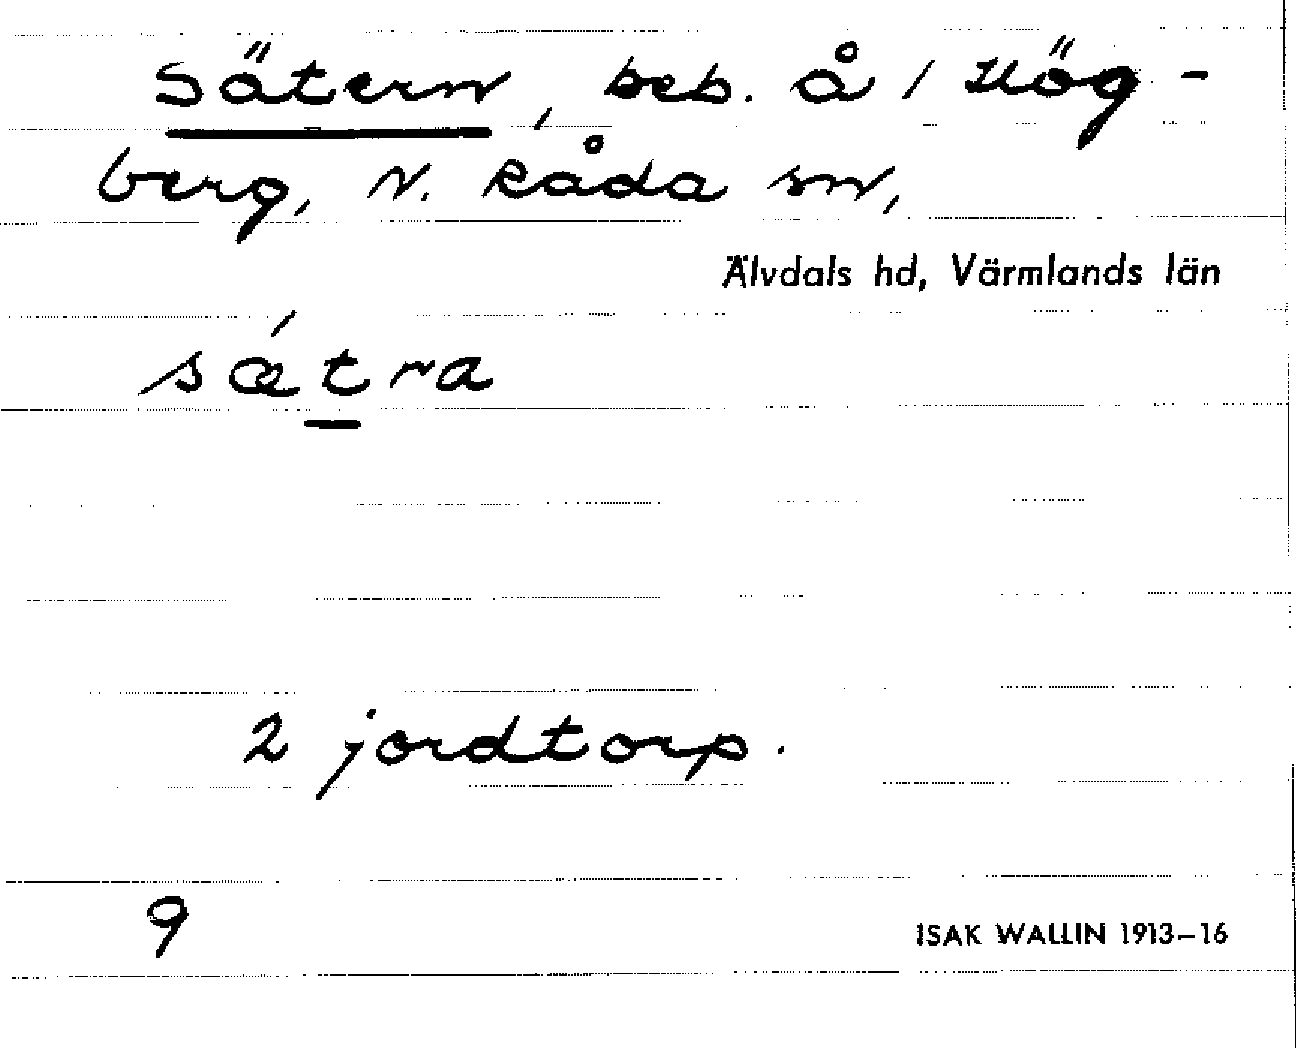 Sätern, beb. å / Hög-
berg, N. Råda sn,
Älvdals hd, Värmlands län
sǽtra
2 jordtorp.
9
ISAK WALLIN 1913–16